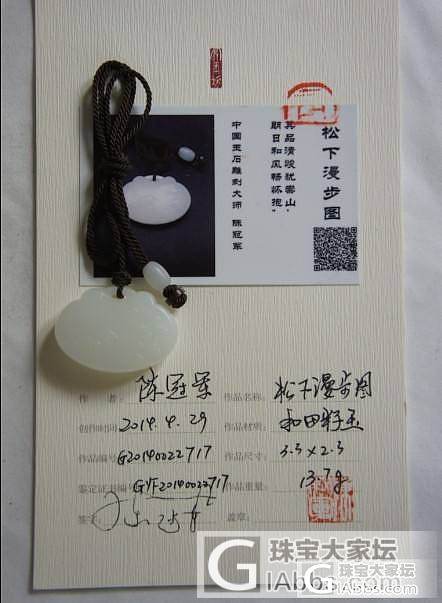 松下漫步图
其品清峻犹崇山，
朝日和风畅怀抱
中国玉石雕刻大师 陈冠军
作 者： 陈冠军
作品名称： 松下漫步图
创作时间： 2014.4.29
作品材质： 和田籽玉
作品编号： G20140022717
作品尺寸： 3.5×2.3
鉴定证书编号： GYF20140022717
作品重量： 13.7g
签字：
盖章：
珠宝大家坛
GIAbbs.com
珠宝大家坛